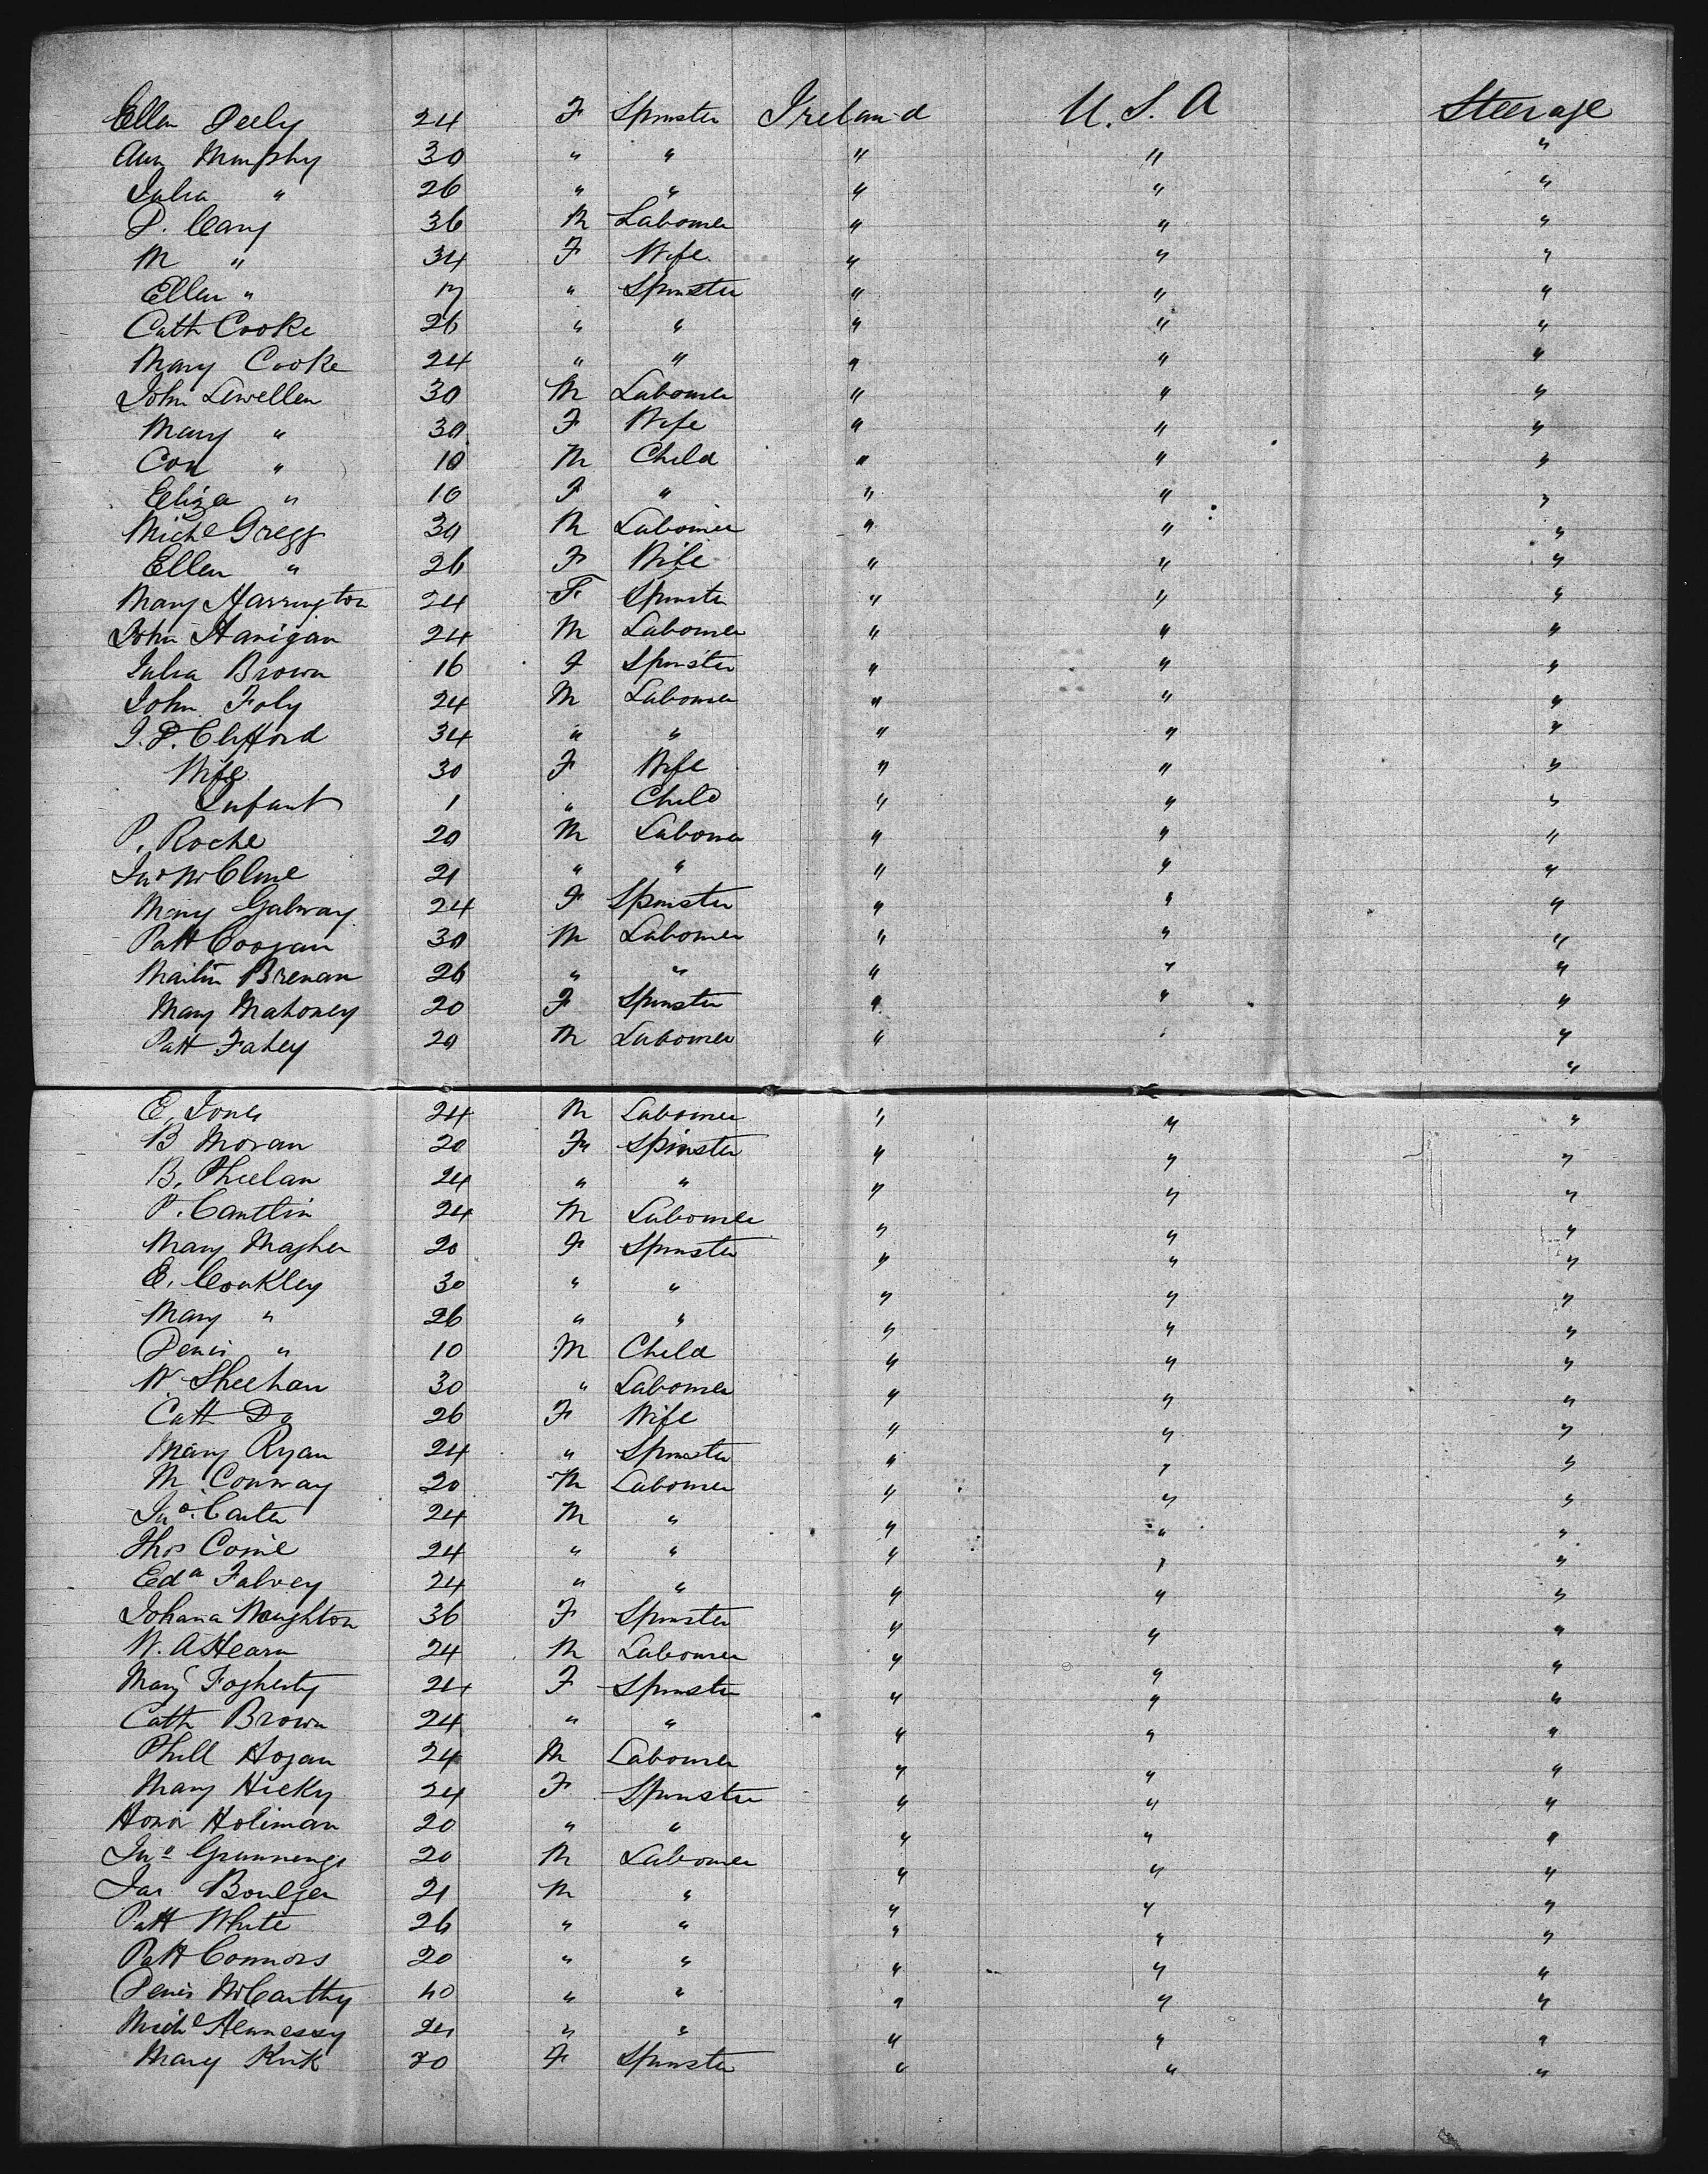 Ellen Deely 24 F Spinster Ireland U.S.A Steerage
Ann Murphy 30 " " " " "
Julia " 26 " " " " "
P. Cary 36 M Labourer " " "
M " 34 F Wife " " "
Ellen " 17 " Spinster " " "
Cath Cooke 26 " " " " "
Mary Cooke 24 " " " " "
John Lewellen 30 M Labourer " " "
Mary " 30 F Wife " " "
Con " 10 M Child " " "
Eliza " 10 F " " " "
Michl Gregg 30 M Labourer " " "
Ellen " 26 F Wife " " "
Mary Harrington 24 F Spinster " " "
John Hanigan 24 M Labourer " " "
Julia Brown 16 F Spinster " " "
John Foly 24 M Labourer " " "
J. P. Clifford 34 " " " " "
Wife 30 F Wife " " "
Infant 1 " Child " " "
P. Roche 20 M Labourer " " "
Jno McClune 21 " " " " "
Mary Galway 24 F Spinster " " "
Patt Coogan 30 M Labourer " " "
Martin Brenan 26 " " " " "
Mary Mahoney 20 F Spinster " " "
Patt Fahey 20 M Labourer " " "
"
E. Jones 24 M Labourer " " "
B Moran 20 F Spinster " " "
B. Pheelan 24 " " " " "
P. Cantlin 24 M Labourer " " "
Mary Magher 20 F Spinster " " "
E. Coakley 30 " " " " "
Mary " 26 " " " " "
Denis " 10 M Child " " "
W. Sheehan 30 " Labourer " " "
Cath Do 26 F Wife " " "
Mary Ryan 24 " Spinster " " "
M Conway 20 M Labourer " " "
Jno. Carter 24 M " " " "
Thos Coine 24 " " " " "
Edd Falvey 24 " " " " "
Johana Naughton 36 F Spinster " " "
W. AHearn 24 M Labourer " " "
Mary Fogherty 24 F Spinster " " "
Cath Brown 24 " " " " "
Phill Hogan 24 M Labourer " " "
Mary Hicky 24 F Spinster " " "
Honor Holiman 20 " " " " "
Jno Grunnengs 20 M Labourer " " "
Jas Boulger 21 M " " " "
Patt White 26 " " " " "
Patt Connors 20 " " " " "
Denis McCarthy 40 " " " " "
Michl Hennessy 24 " " " " "
Mary Kirk 20 F Spinster " " "